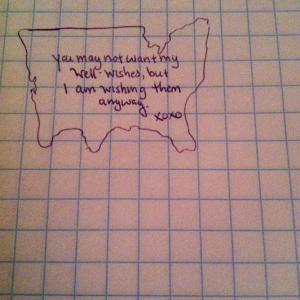 you may not want my
well-wishes, but
I am wishing them
anyway.
xoxo